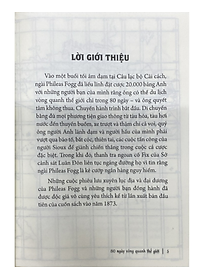 LỜI GIỚI THIỆU
Vào một buổi tối ảm đạm tại Câu lạc bộ Cải cách,
ngài Phileas Fogg đã liều lĩnh đặt cược 20.000 bảng Anh
với những người bạn của mình rằng ông có thể du lịch
vòng quanh thế giới chỉ trong 80 ngày – và ông quyết
tâm không thua. Chương trình bắt đầu. Di chuyển
bằng đủ mọi phương tiện giao thông từ tàu hỏa, tàu hơi
nước đến thuyền buồm, xe trượt và thậm chí cả voi,
quý ông người Anh lãnh đạm và người hầu của mình phải
vượt qua bão tố, bị bắt cóc, thậm chí cả cuộc tấn công của người
Sioux để giành chiến thắng trong cuộc cá cược đặc
biệt. Trong khi đó, thanh tra ngoan cố Fix của Sở
cảnh sát Luân Đôn liên tục ngáng đường vì tin rằng
ngài Phileas Fogg là kẻ cướp ngân hàng nguy hiểm.
Những cuộc phiêu lưu xuyên lục địa và đại dương
của Phileas Fogg và những người bạn đồng hành đã
được độc giả vô cùng yêu thích kể từ lần xuất bản đầu
tiên của cuốn sách vào năm 1873.
80 ngày vòng quanh thế giới
3